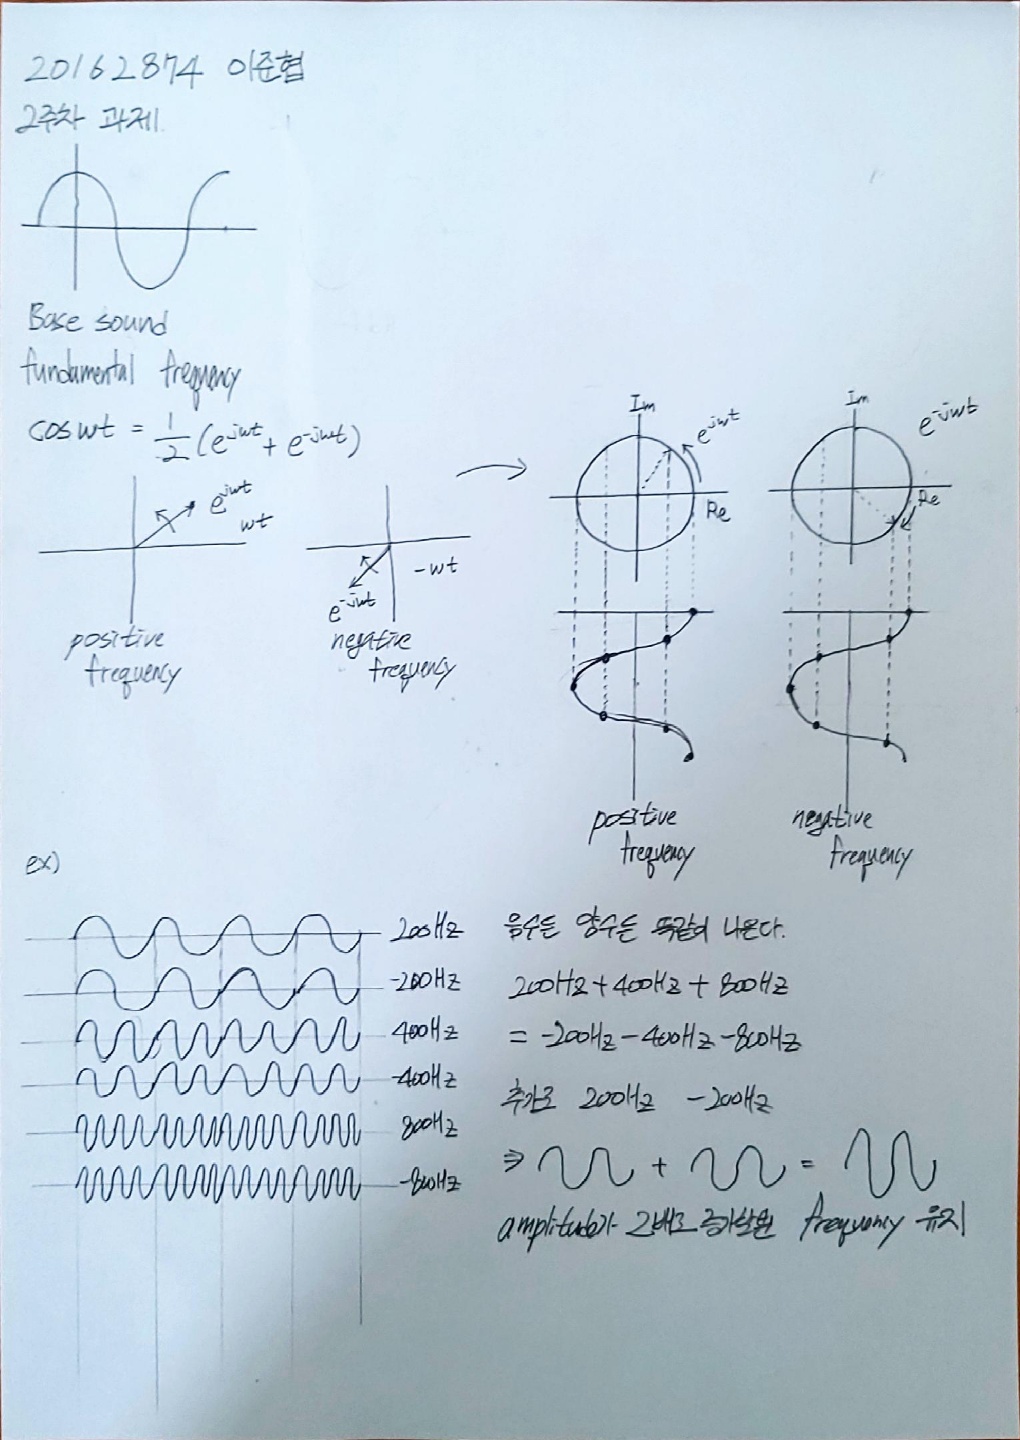 20162874 이준협
2주차 과제.
Base sound
fundamental frequency
cos wt = 1/2 (e^jwt + e^-jwt)
e^jwt
wt
positive
frequency
-wt
e^-jwt
negative
frequency
Im
e^jwt
Re
positive
frequency
Im
e^-jwt
Re
negative
frequency
ex)
200Hz
-200Hz
400Hz
-400Hz
800Hz
-800Hz
음수든 양수든 똑같이 나온다.
200Hz + 400Hz + 800Hz
= -200Hz - 400Hz - 800Hz
추가로 200Hz -200Hz
⇒ + =
amplitude가 2배로 증가할뿐 frequency 유지